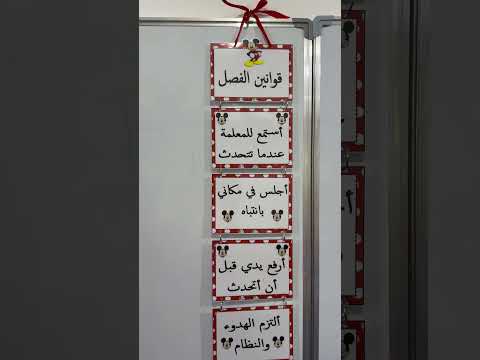 قوانين الفصل
أستمع للمعلمة
عندما تتحدث
أجلس في مكاني
بانتباه
أرفع يدي قبل
أن أتحدث
ألتزم الهدوء
والنظام